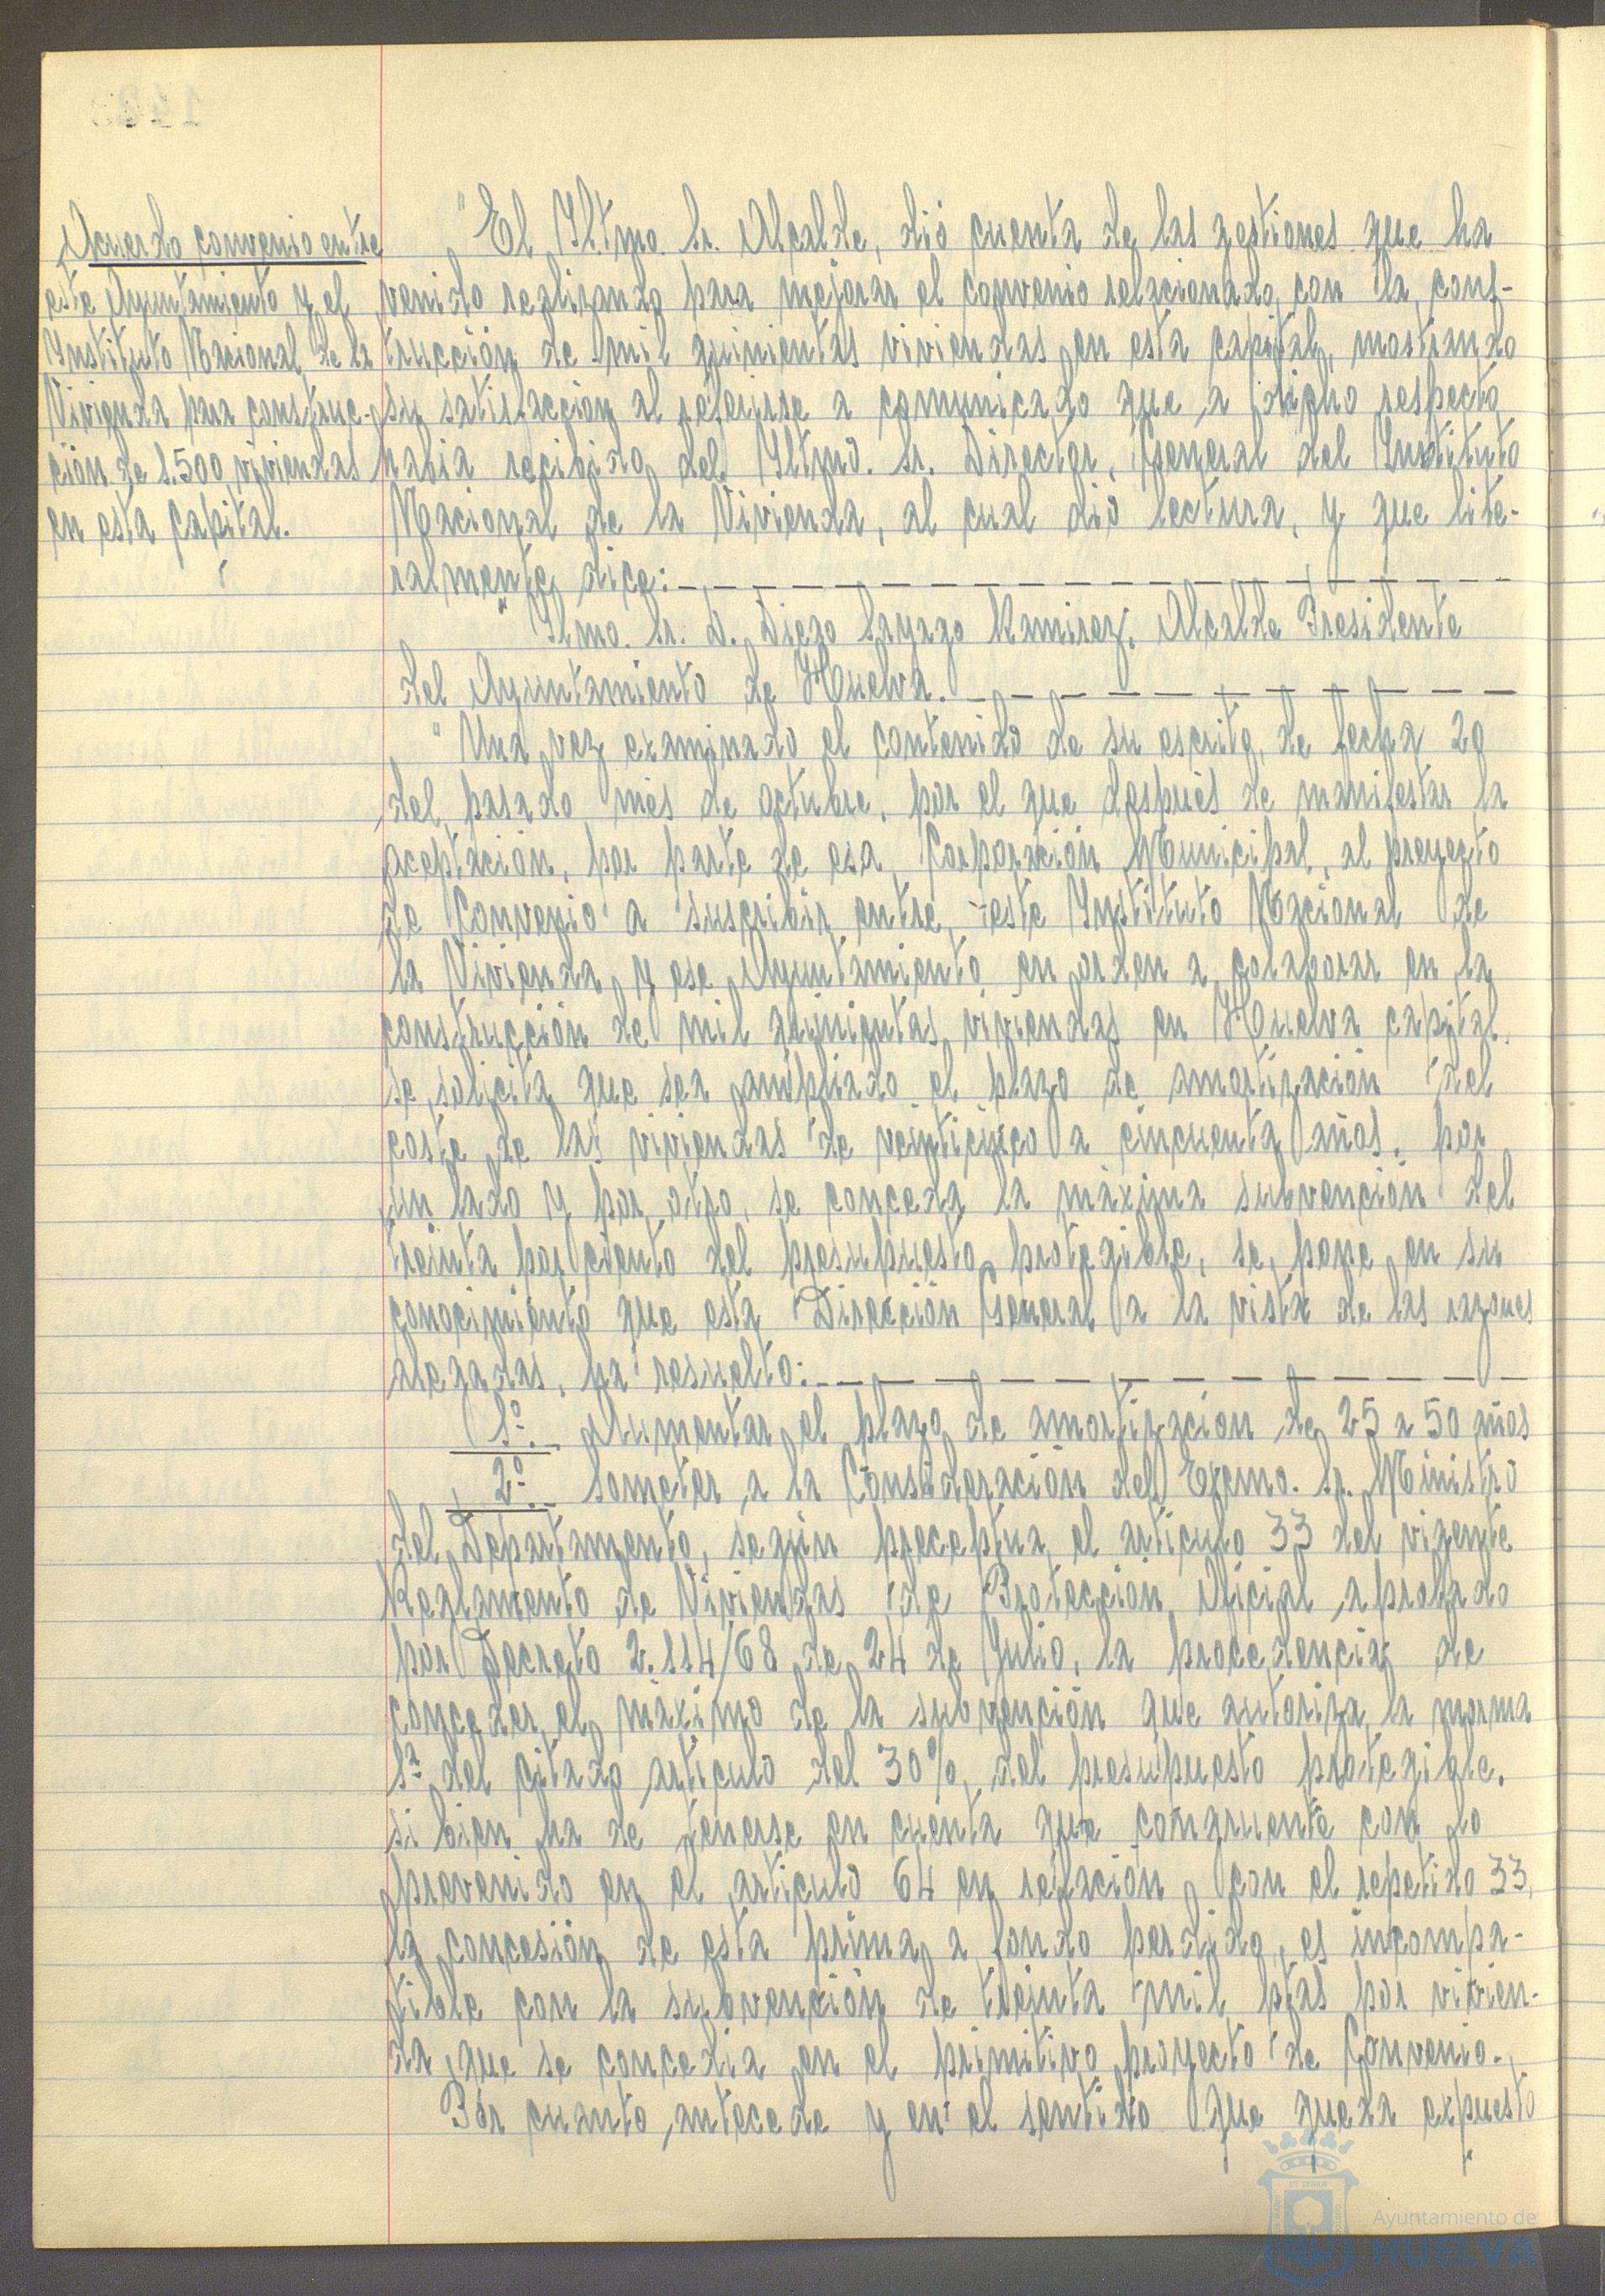 Acuerdo convenio entre
este Ayuntamiento y el
Instituto Nacional de la
Vivienda para construc-
ción de 1.500 viviendas
en esta capital.
"El Iltmo. Sr. Alcalde, dió cuenta de las gestiones que ha
venido realizando para mejorar el convenio relacionado con la cons-
trucción de mil quinientas viviendas en esta capital, mostrando
su satisfacción al referirse a comunicado que a dicho respecto
había recibido del Iltmo. Sr. Director General del Instituto
Nacional de la Vivienda, al cual dió lectura, y que lite-
ralmente dice:
"Ilmo. Sr. D. Diego Sayago Ramirez, Alcalde Presidente
del Ayuntamiento de Huelva.
"Una vez examinado el contenido de su escrito, de fecha 29
del pasado mes de octubre, por el que después de manifestar la
aceptación, por parte de esa Corporación Municipal, al proyecto
de Convenio a suscribir entre este Instituto Nacional de
la Vivienda y ese Ayuntamiento en orden a colaborar en la
construcción de mil quinientas viviendas en Huelva capital,
se solicita que sea ampliado el plazo de amortización del
coste de las viviendas de veinticinco a cincuenta años, por
un lado y por otro, se conceda la máxima subvención del
treinta por ciento del presupuesto protegible, se pone en su
conocimiento que esta Dirección General a la vista de las razones
alegadas, ha resuelto:
1º. Aumentar el plazo de amortización de 25 a 50 años
2º. Someter a la Consideración del Excmo. Sr. Ministro
del Departamento, según preceptua el artículo 33 del vigente
Reglamento de Viviendas de Protección Oficial aprobado
por Decreto 2.114/68 de 24 de Julio, la procedencia de
conceder el máximo de la subvención que autoriza la norma
1ª del citado artículo del 30% del presupuesto protegible,
si bien ha de tenerse en cuenta que congruente con lo
prevenido en el artículo 64 en relación con el repetido 33,
la concesión de esta prima a fondo perdido, es incompa-
tible con la subvención de treinta mil ptas por vivien-
da que se concedia en el primitivo proyecto de Convenio.
Por cuanto antecede y en el sentido que queda expuesto
Ayuntamiento de
HUELVA